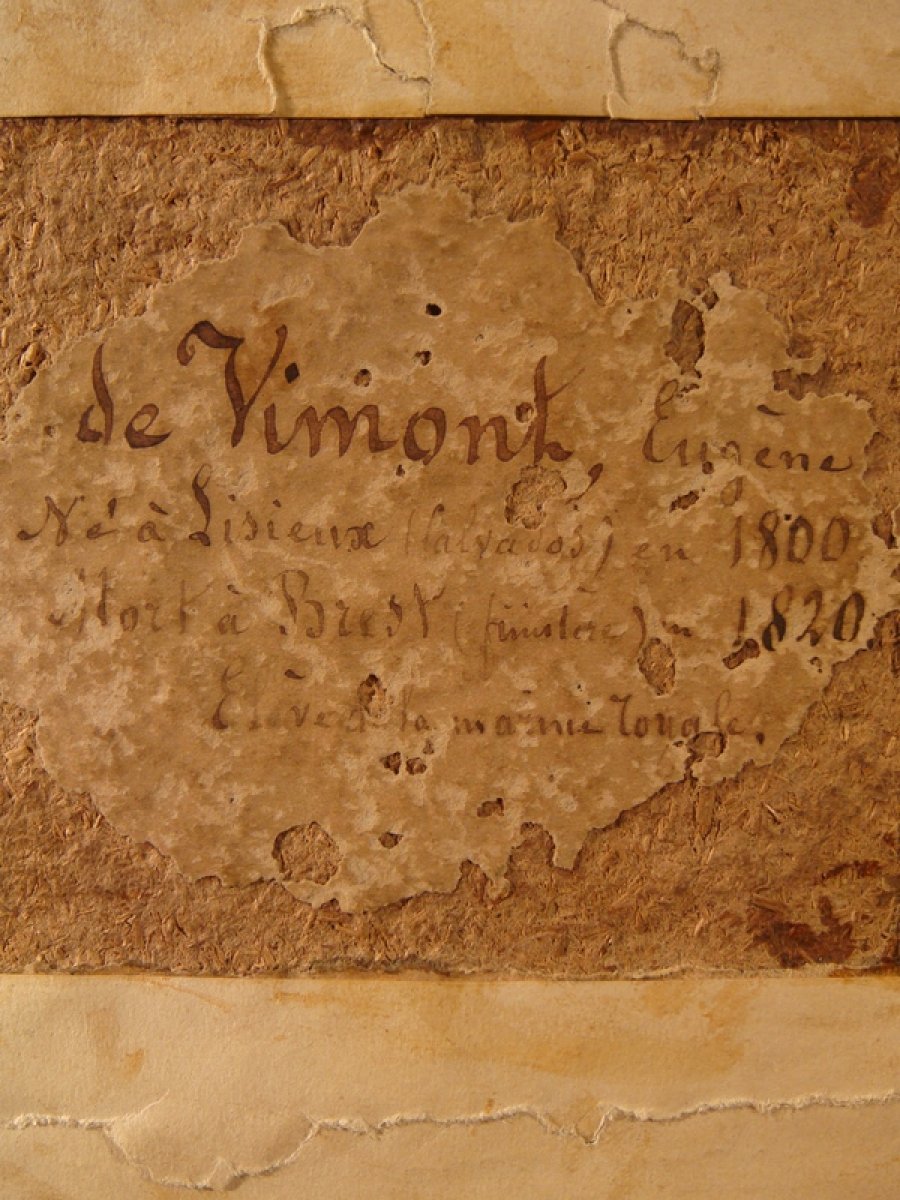 de Vimont, Eugène
Né à Lisieux (Calvados) en 1800
Mort à Brest (finistère) en 1820.
Elève la marine